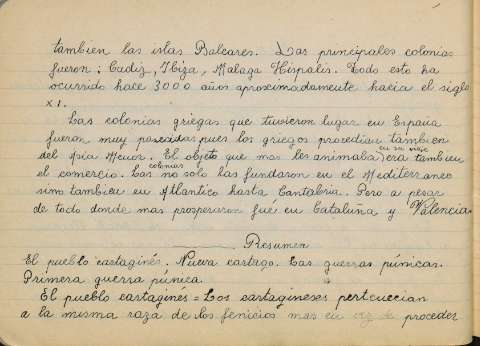 tambien las islas Baleares. Las principales colonias
fueron: Cadiz, Ibiza, Malaga Hispalis. Todo esto ha
ocurrido hace 3000 años aproximadamente hacia el siglo
XI.
Las colonias griegas que tuvieron lugar en España
fueron muy parecidas pues los griegos procedian tambien
del Asia Menor. El objeto que mas les animaba en su viaje era tambien
el comercio. Las colonias no solo las fundaron en el Mediterraneo
sino tambien en Atlantico hasta Cantabria. Pero a pesar
de todo donde mas prosperaron fué en Cataluña y Valencia
Resumen
El pueblo cartaginés. Nueva cartago. Las guerras púnicas.
Primera guerra púnica.
El pueblo cartaginés = Los cartagineses pertenecian
a la misma raza de los fenicios mas en vez de proceder